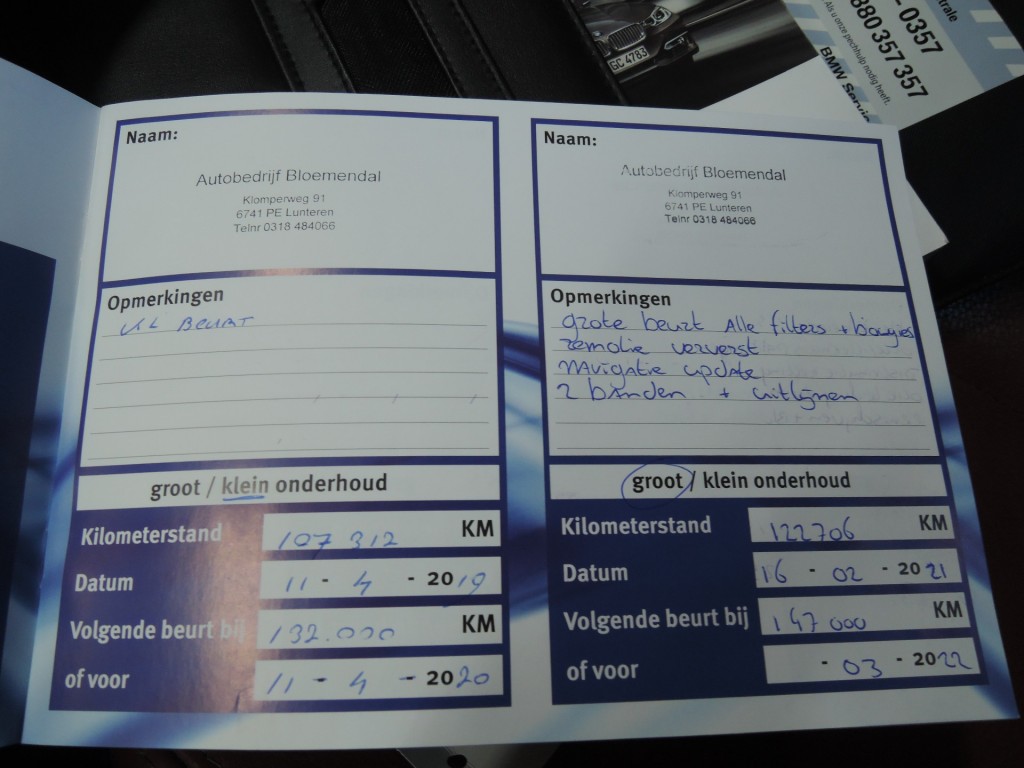 GC 4783
trale
- 0357
Als u onze pechhulp nodig heeft.
880 357 357
BMW Servic
Naam:
Autobedrijf Bloemendal
Klomperweg 91
6741 PE Lunteren
Telnr 0318 484066
Opmerkingen
KL BEURT
groot / klein onderhoud
Kilometerstand 107 312 KM
Datum 11 - 4 - 2019
Volgende beurt bij 132.000 KM
of voor 11 - 4 - 2020
Naam:
Autobedrijf Bloemendal
Klomperweg 91
6741 PE Lunteren
Telnr 0318 484066
Opmerkingen
grote beurt Alle filters + bougies
remolie ververst
navigatie update
2 banden + uitlijnen
groot / klein onderhoud
Kilometerstand 122706 KM
Datum 16 - 02 - 2021
Volgende beurt bij 147000 KM
of voor - 03 - 2022